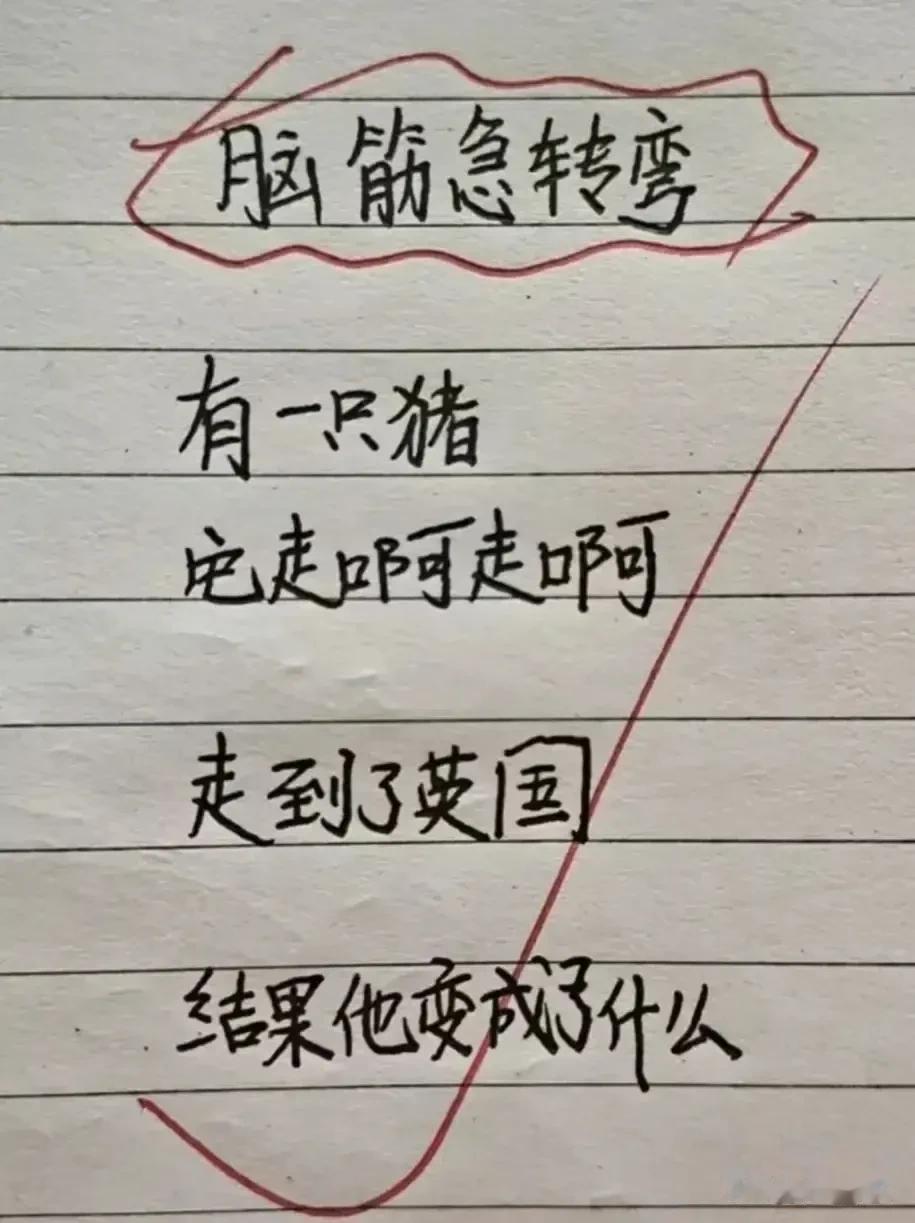 脑筋急转弯
有一只猪
它走啊走啊
走到了英国
结果他变成了什么